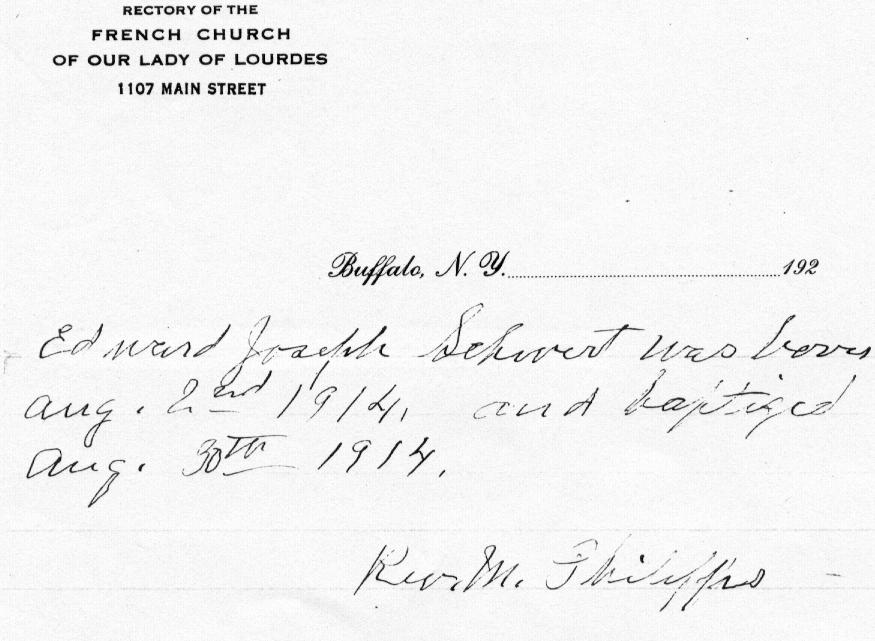 RECTORY OF THE
FRENCH CHURCH
OF OUR LADY OF LOURDES
1107 MAIN STREET
Buffalo, N. Y. 192
Edward Joseph Schwert was born
Aug. 2nd 1914, and baptized
Aug. 30th 1914.
Rev. M. Philipps